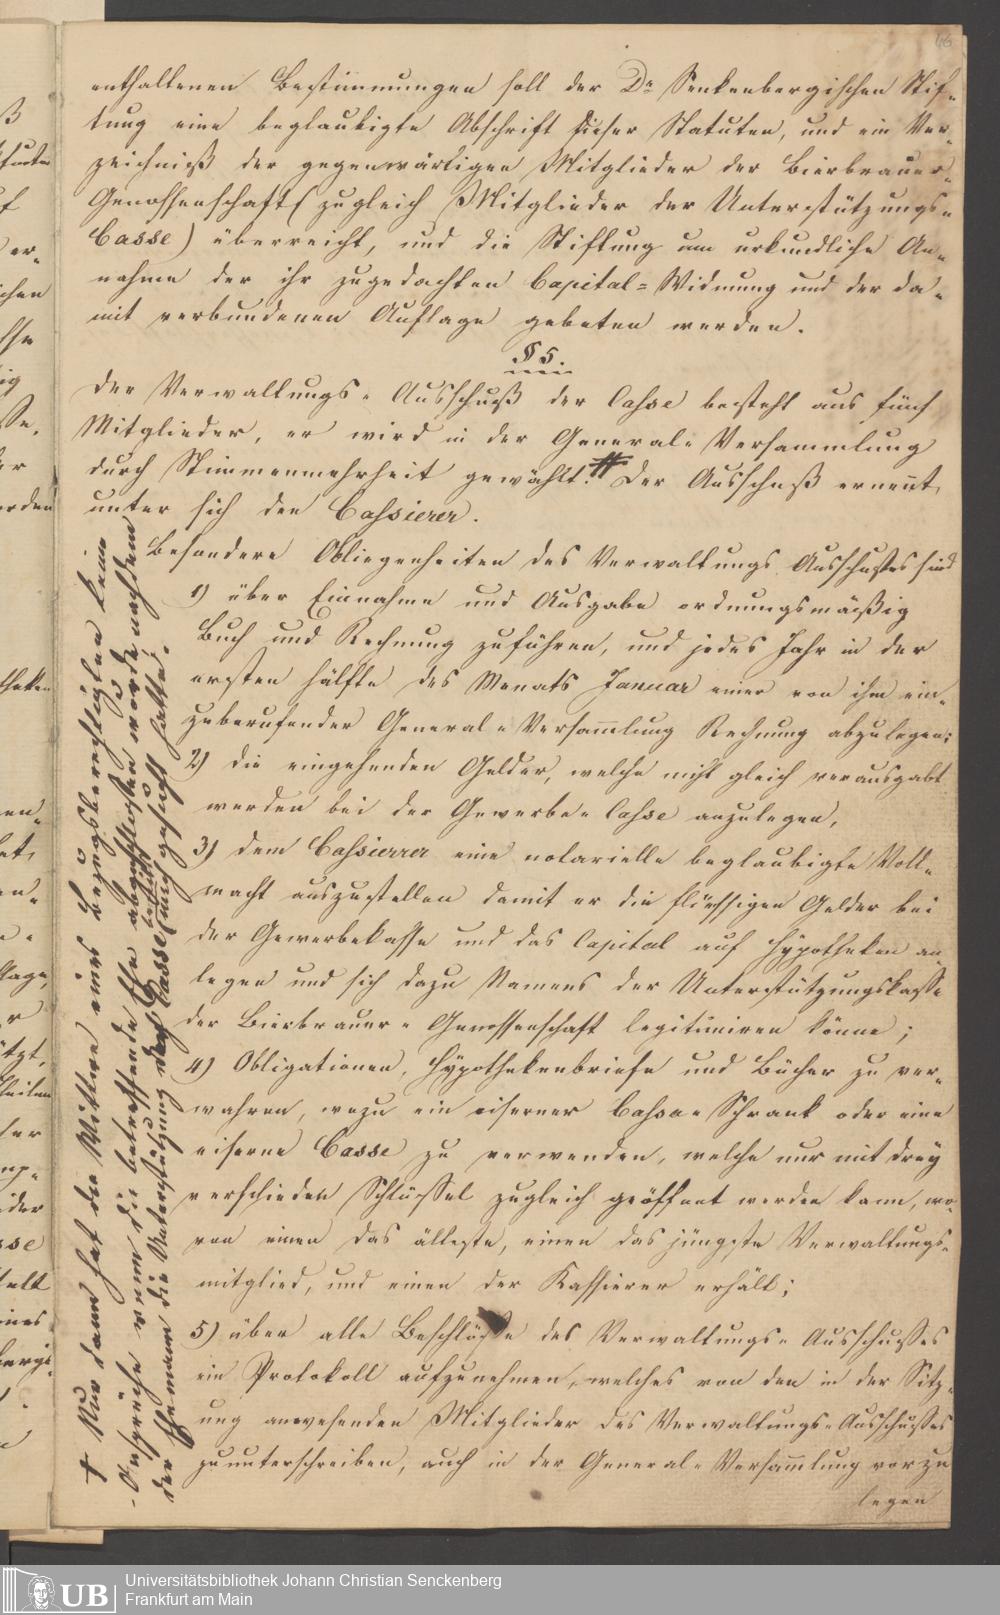 46
enthaltenen Bestimmungen soll der Dr Senkenbergischen Stif-
tung eine beglaubigte Abschrift dieser Statuten, und ein Ver-
zeichniß der gegenwärtigen Mitglieder der Bierbrauer-
Genossenschaft (zugleich Mitglieder der Unterstützungs-
Casse) überreicht, und die Stiftung um urkundliche An-
nahme der ihr zugedachten Capital-Widmung und der da-
mit verbundenen Auflage gebeten werden.
§ 5.
Der Verwaltungs-Ausschuß der Casse besteht aus fünf
Mitglieder, er wird in der General-Versammlung
durch Stimmenmehrheit gewählt. Der Ausschuß ernennt
unter sich den Cassierer.
Besondere Obliegenheiten des Verwaltungs Ausschusses sind
1) über Einnahme und Ausgabe ordnungsmäßig
Buch und Rechnung zuführen, und jedes Jahr in der
ersten hälfte des Monats Januar einer von ihm ein-
zuberufender General-Versammlung Rechnung abzulegen;
2) die eingehenden Gelder, welche nicht gleich verausgabt
werden bei der Gewerbe-Casse anzulegen,
3) dem Cassierrer eine notarielle beglaubigte Voll-
macht auszustellen damit er die flüssigen Gelder bei
der Gewerbekasse und das Capital auf Hypotheken an-
legen und sich dazu Namens der Unterstützungskasse
der Bierbrauer-Genossenschaft legitimiren könne;
4) Obligationen, Hypothekenbriefe und Bücher zu ver-
wahren, wozu ein eiserner Cassa-Schrank oder eine
eiserne Casse zu verwenden, welche nur mit drey
verschieden Schlüssel zugleich geöffnet werden kann, wo-
von einen das älteste, einen das jüngste Verwaltungs-
mitglied, und einen der Kassierer erhält;
5) über alle Beschlüsse des Verwaltungs-Ausschusses
ein Protokoll aufzunehmen, welches von den in der Sitz-
ung anwesenden Mitglieder des Verwaltungs-Ausschusses
zuunterschreiben, auch in der General-Versammlung vorzu
legen
+ Nur dann hat die Wittwe eines Bezugsberechtigten keine
Ansprüche wenn die betreffende Ehe abgeschlossen worde nachdem
der Ehemann die Unterstützung der Casse bereits nachgesucht hatte.
UB
Universitätsbibliothek Johann Christian Senckenberg
Frankfurt am Main